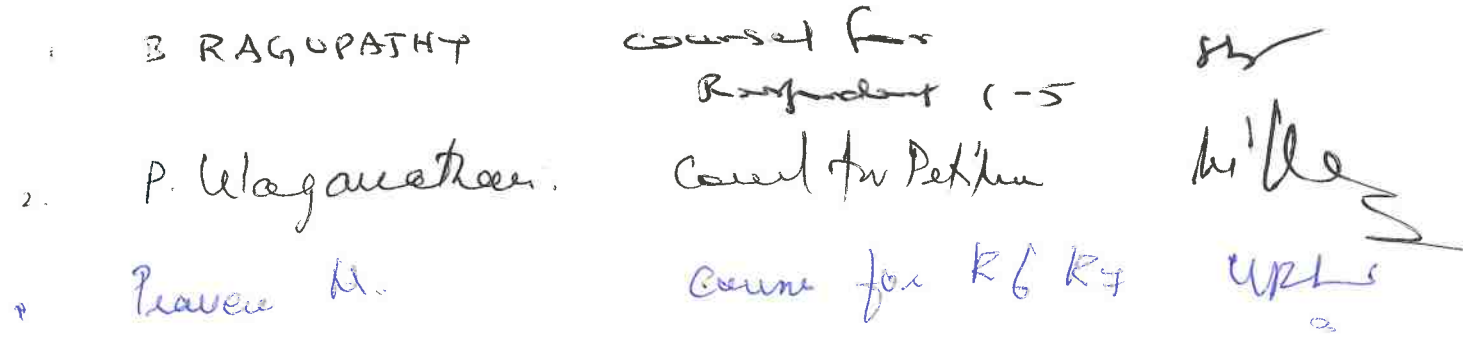 B RAGUPATHY counsel for
Respondent 1-5
2. P. Ulaganathan. Counsel for Petitioner
Praveen M. Counsel for R6 R7